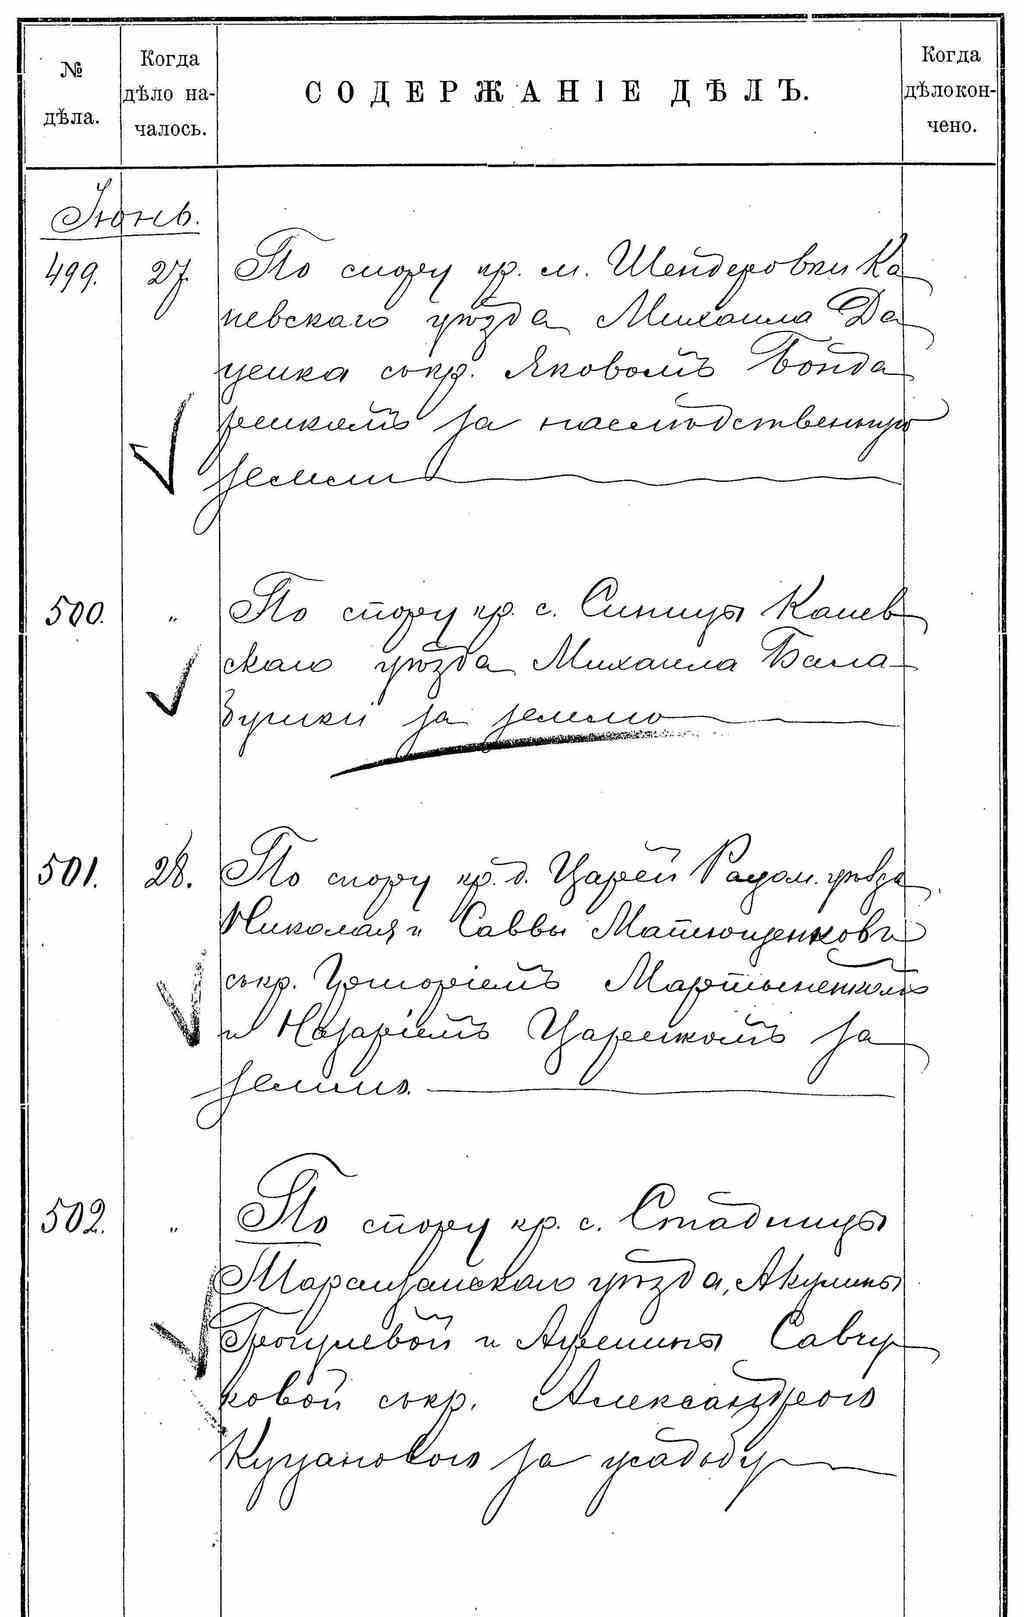 № дѣла.
Когда дѣло на-
чалось.
СОДЕРЖАНІЕ ДѢЛЪ.
Когда дѣлокон-
чено.
Іюнь.
499. 27. По спору кр. м. Шендеровки Ка
невскаго уѣзда Михаила Да
ценка съ кр. Яковомъ Бонда
ренкомъ за наслѣдственную
землю
500. " По спору кр. с. Синицы Канев
скаго уѣзда Михаила Бала
за землю
501. 28. По спору кр. д. Царей Радом. уѣзда
Николая и Саввы Матющенковъ
съ кр. Григоріемъ Мартыненкомъ
и Назаріемъ Царенкомъ за
землю.
502. " По спору кр. с. Стадницы
Таращанскаго уѣзда, Акулины
и Савчу
ковой съ кр. Александрою
за усадьбу